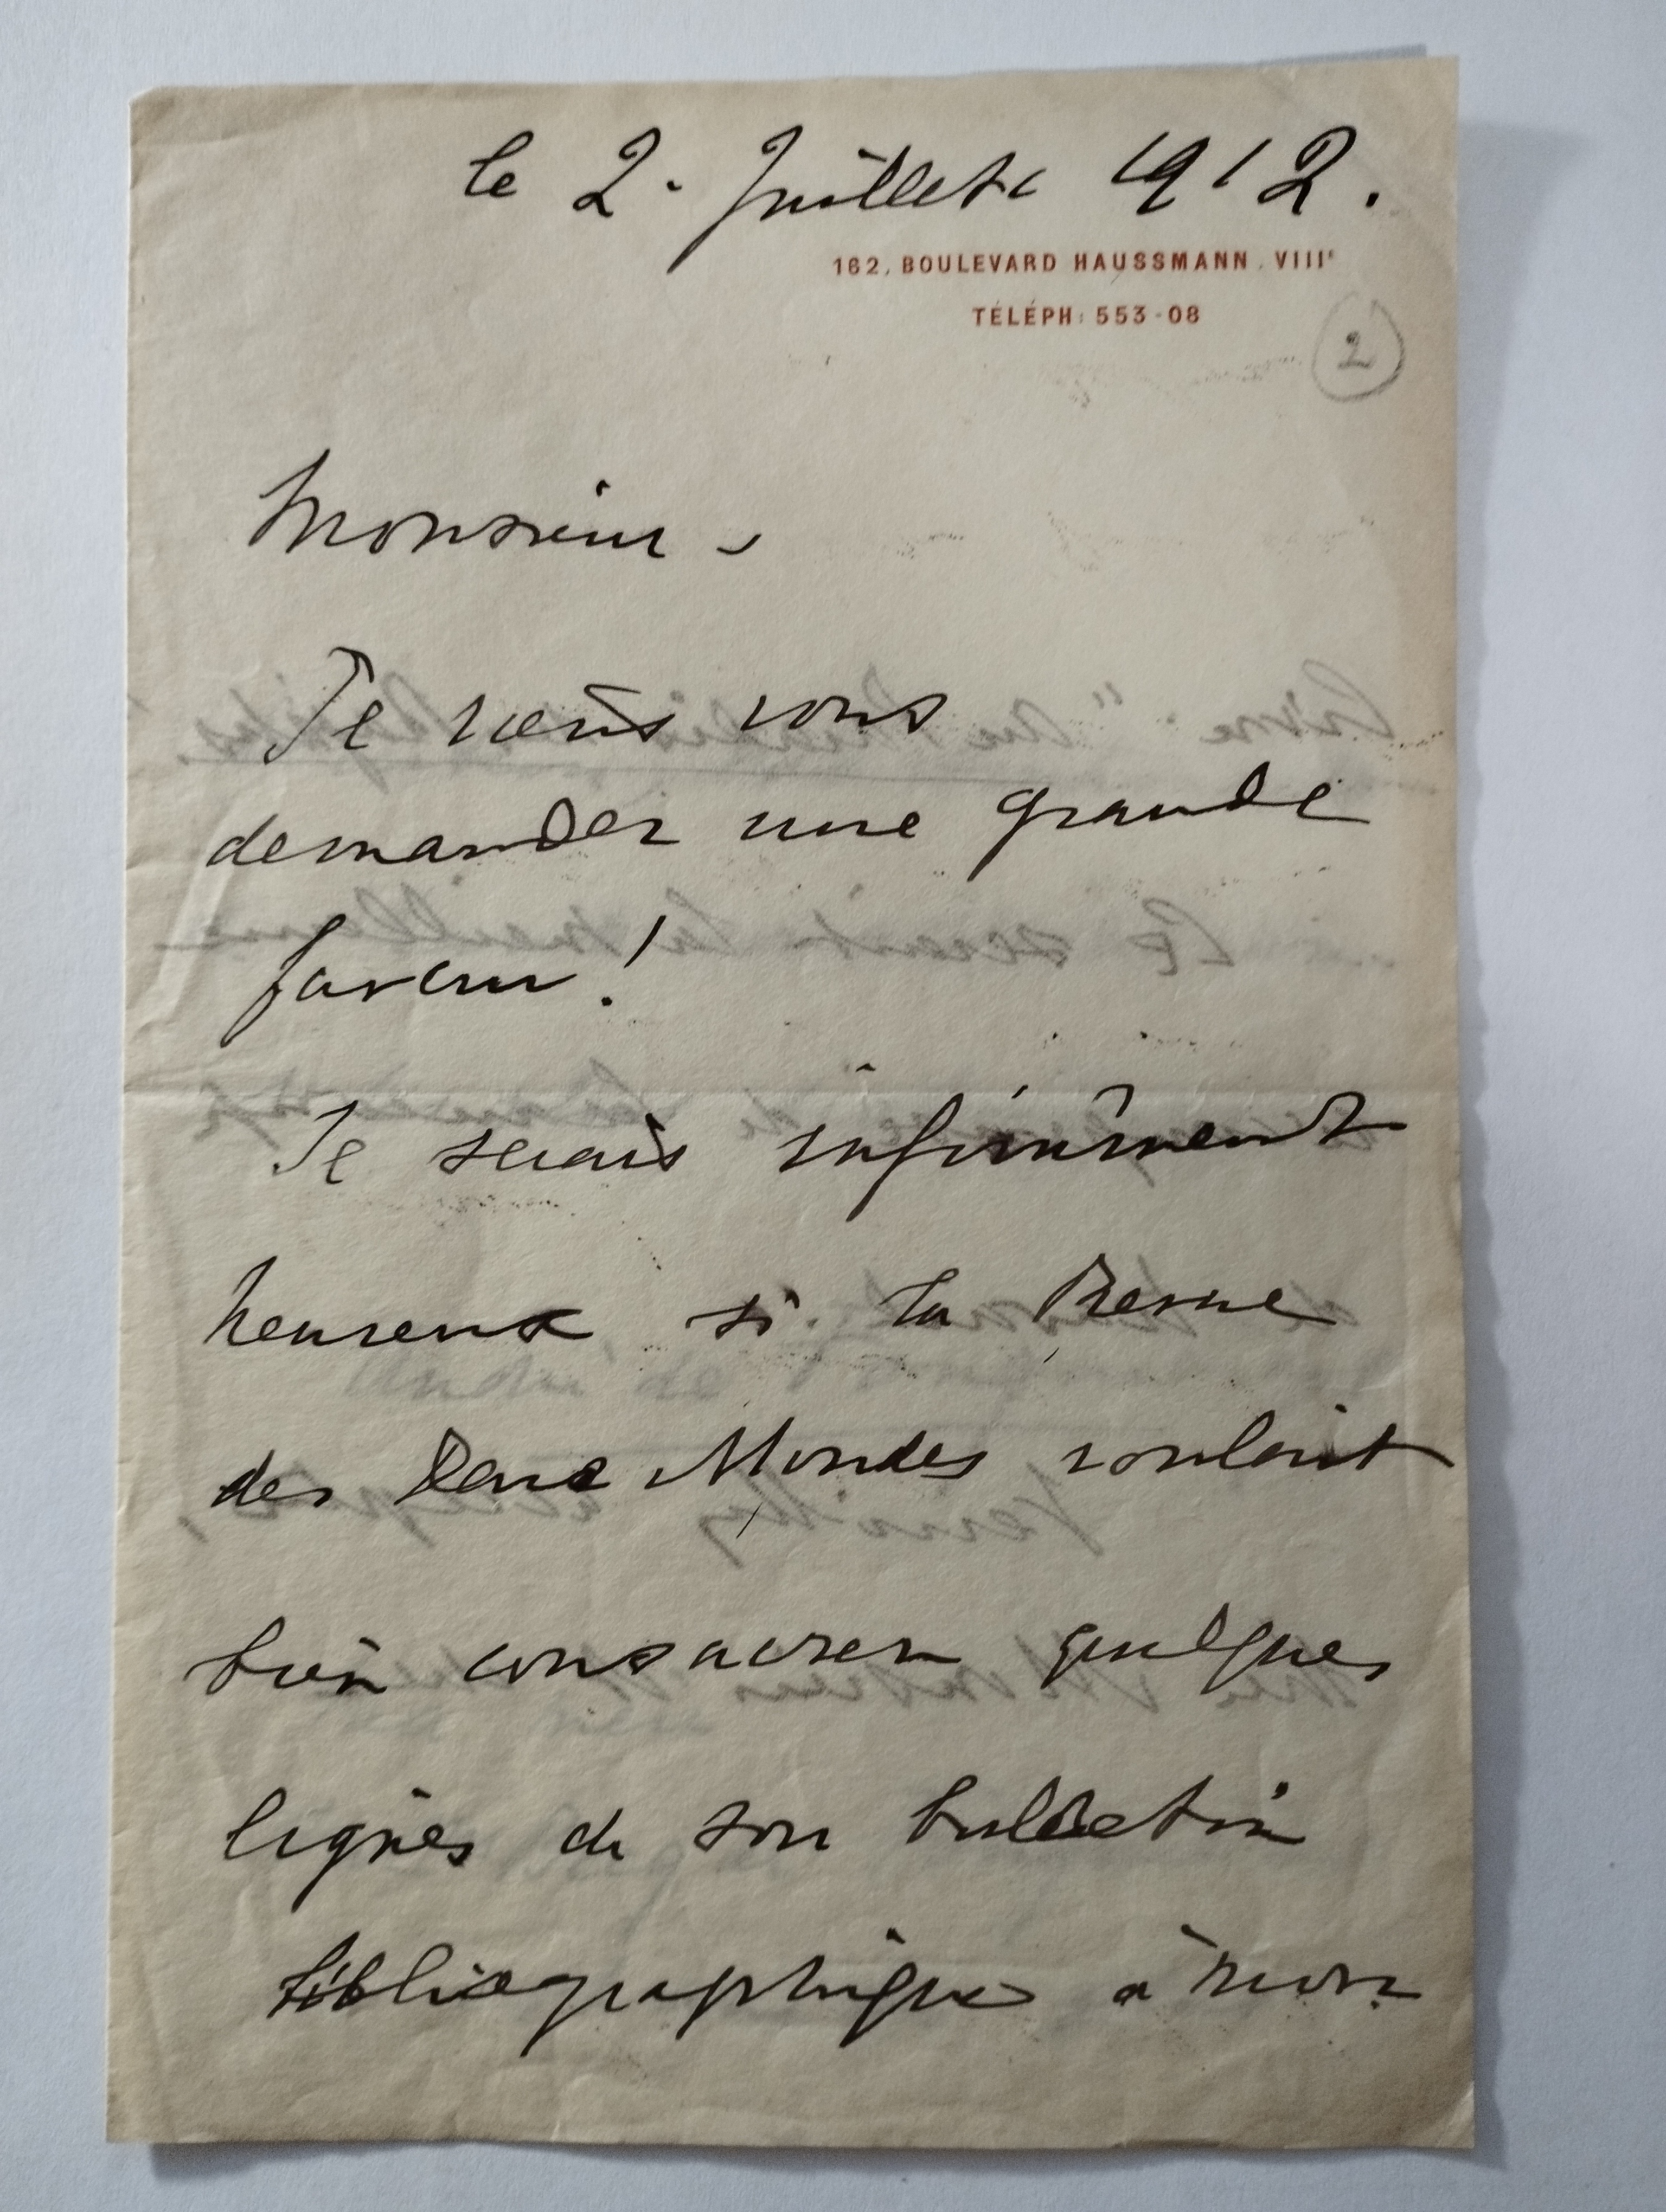 le 2. Juillet 1912.
162, BOULEVARD HAUSSMANN. VIIIe
TÉLÉPH: 553-08
2
Monsieur -
Je viens vous
demander une grande
faveur!
Je serais infiniment
heureux si la Revue
des Deux Mondes voulait
bien consacrer quelques
lignes de son bulletin
bibliographique à mon